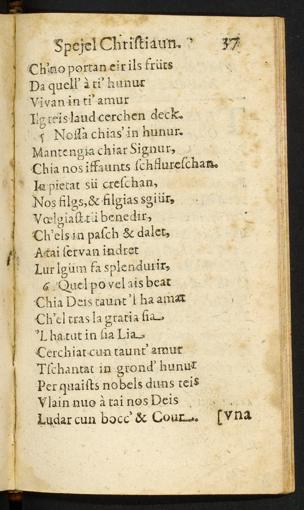 Spejel Christiaun. 37
Ch'no portan eir ils früts
Da quell' à ti' hunur
Vivan in ti' amur
Ilg teis laud cerchen deck.
5 Nossa chias' in hunur.
Mantengia chiar Signur,
Chia nos iffaunts schflureschan.
In pietat sü creschan,
Nos filgs, & filgias sgiür,
Vœlgiast tü benedir,
Ch'els in pasch & dalet,
A tai servan indret
Lur lgüm fa splendurir,
6 Quel po vel ais beat
Chia Deis taunt 'l ha amat
Ch'el tras la gratia sia
'L ha tut in sia Lia
Cerchiat cun taunt' amur
Tschantat in grond' hunur
Per quaists nobels duns teis
Vlain nuo à tai nos Deis
Ludar cun bocc' & Cour. [vna